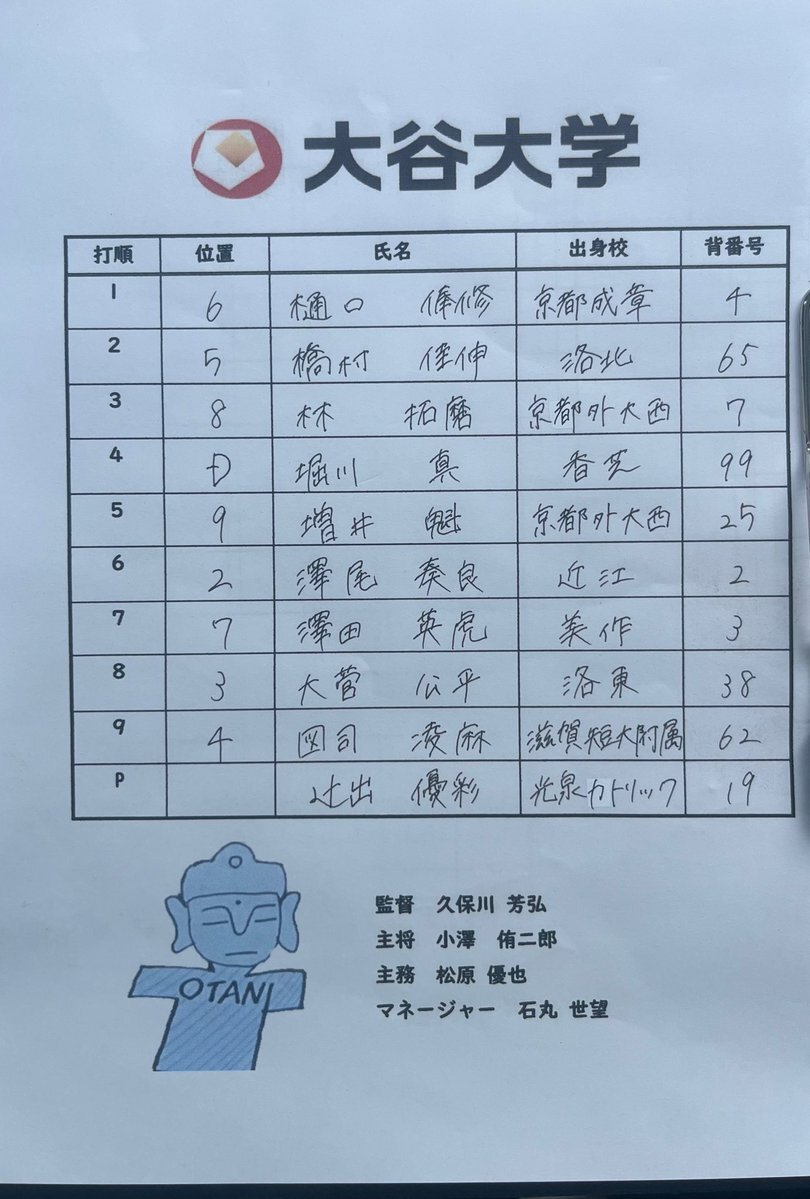 大谷大学
打順 位置 氏名 出身校 背番号
1 6 樋口 倖修 京都成章 4
2 5 橋村 佳伸 洛北 65
3 8 林 拓磨 京都外大西 7
4 D 堀川 真 香芝 99
5 9 増井 魁 京都外大西 25
6 2 澤尾 奏良 近江 2
7 7 澤田 英虎 美作 3
8 3 大菅 公平 洛東 38
9 4 図司 凌麻 滋賀短大附属 62
P 辻出 優彩 光泉カトリック 19
OTANI
監督 久保川 芳弘
主将 小澤 侑二郎
主務 松原 優也
マネージャー 石丸 世望